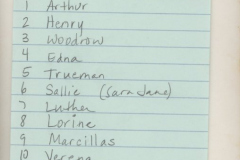 1 Arthur
2 Henry
3 Woodrow
4 Edna
5 Trueman
6 Sallie (Sara Jane)
7 Luther
8 Lorine
9 Marcillas
10 Verena